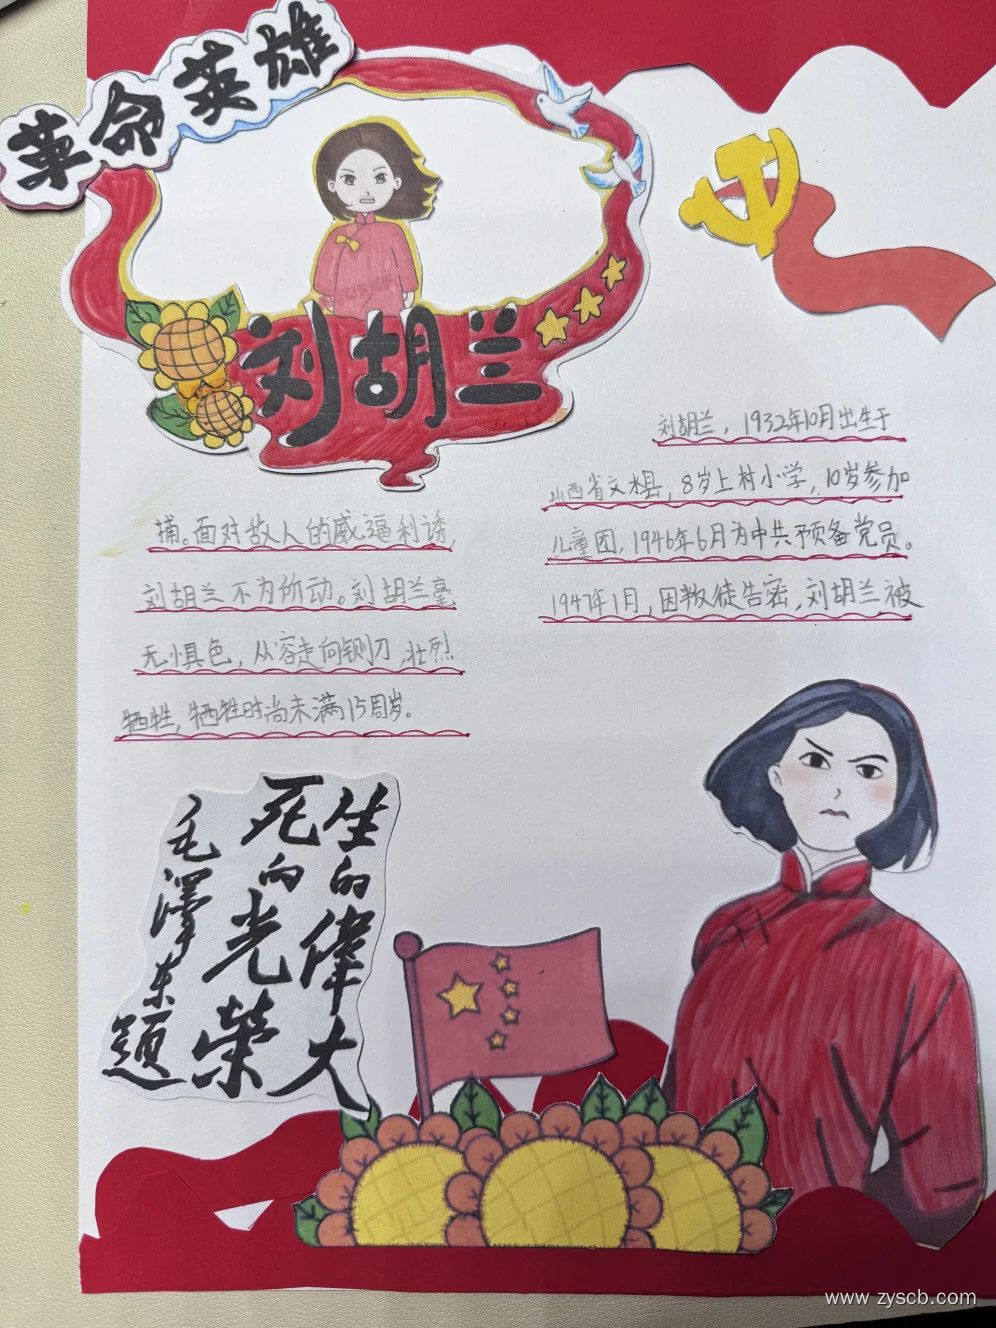 革命英雄
刘胡兰
刘胡兰，1932年10月出生于
山西省文水县，8岁上村小学，10岁参加
儿童团，1946年6月为中共预备党员。
1947年1月，因叛徒告密，刘胡兰被
捕。面对敌人的威逼利诱，
刘胡兰不为所动。刘胡兰毫
无惧色，从容走向铡刀，壮烈
牺牲，牺牲时尚未满15周岁。
生的偉大
死的光荣
毛澤东题
www.zyscb.com